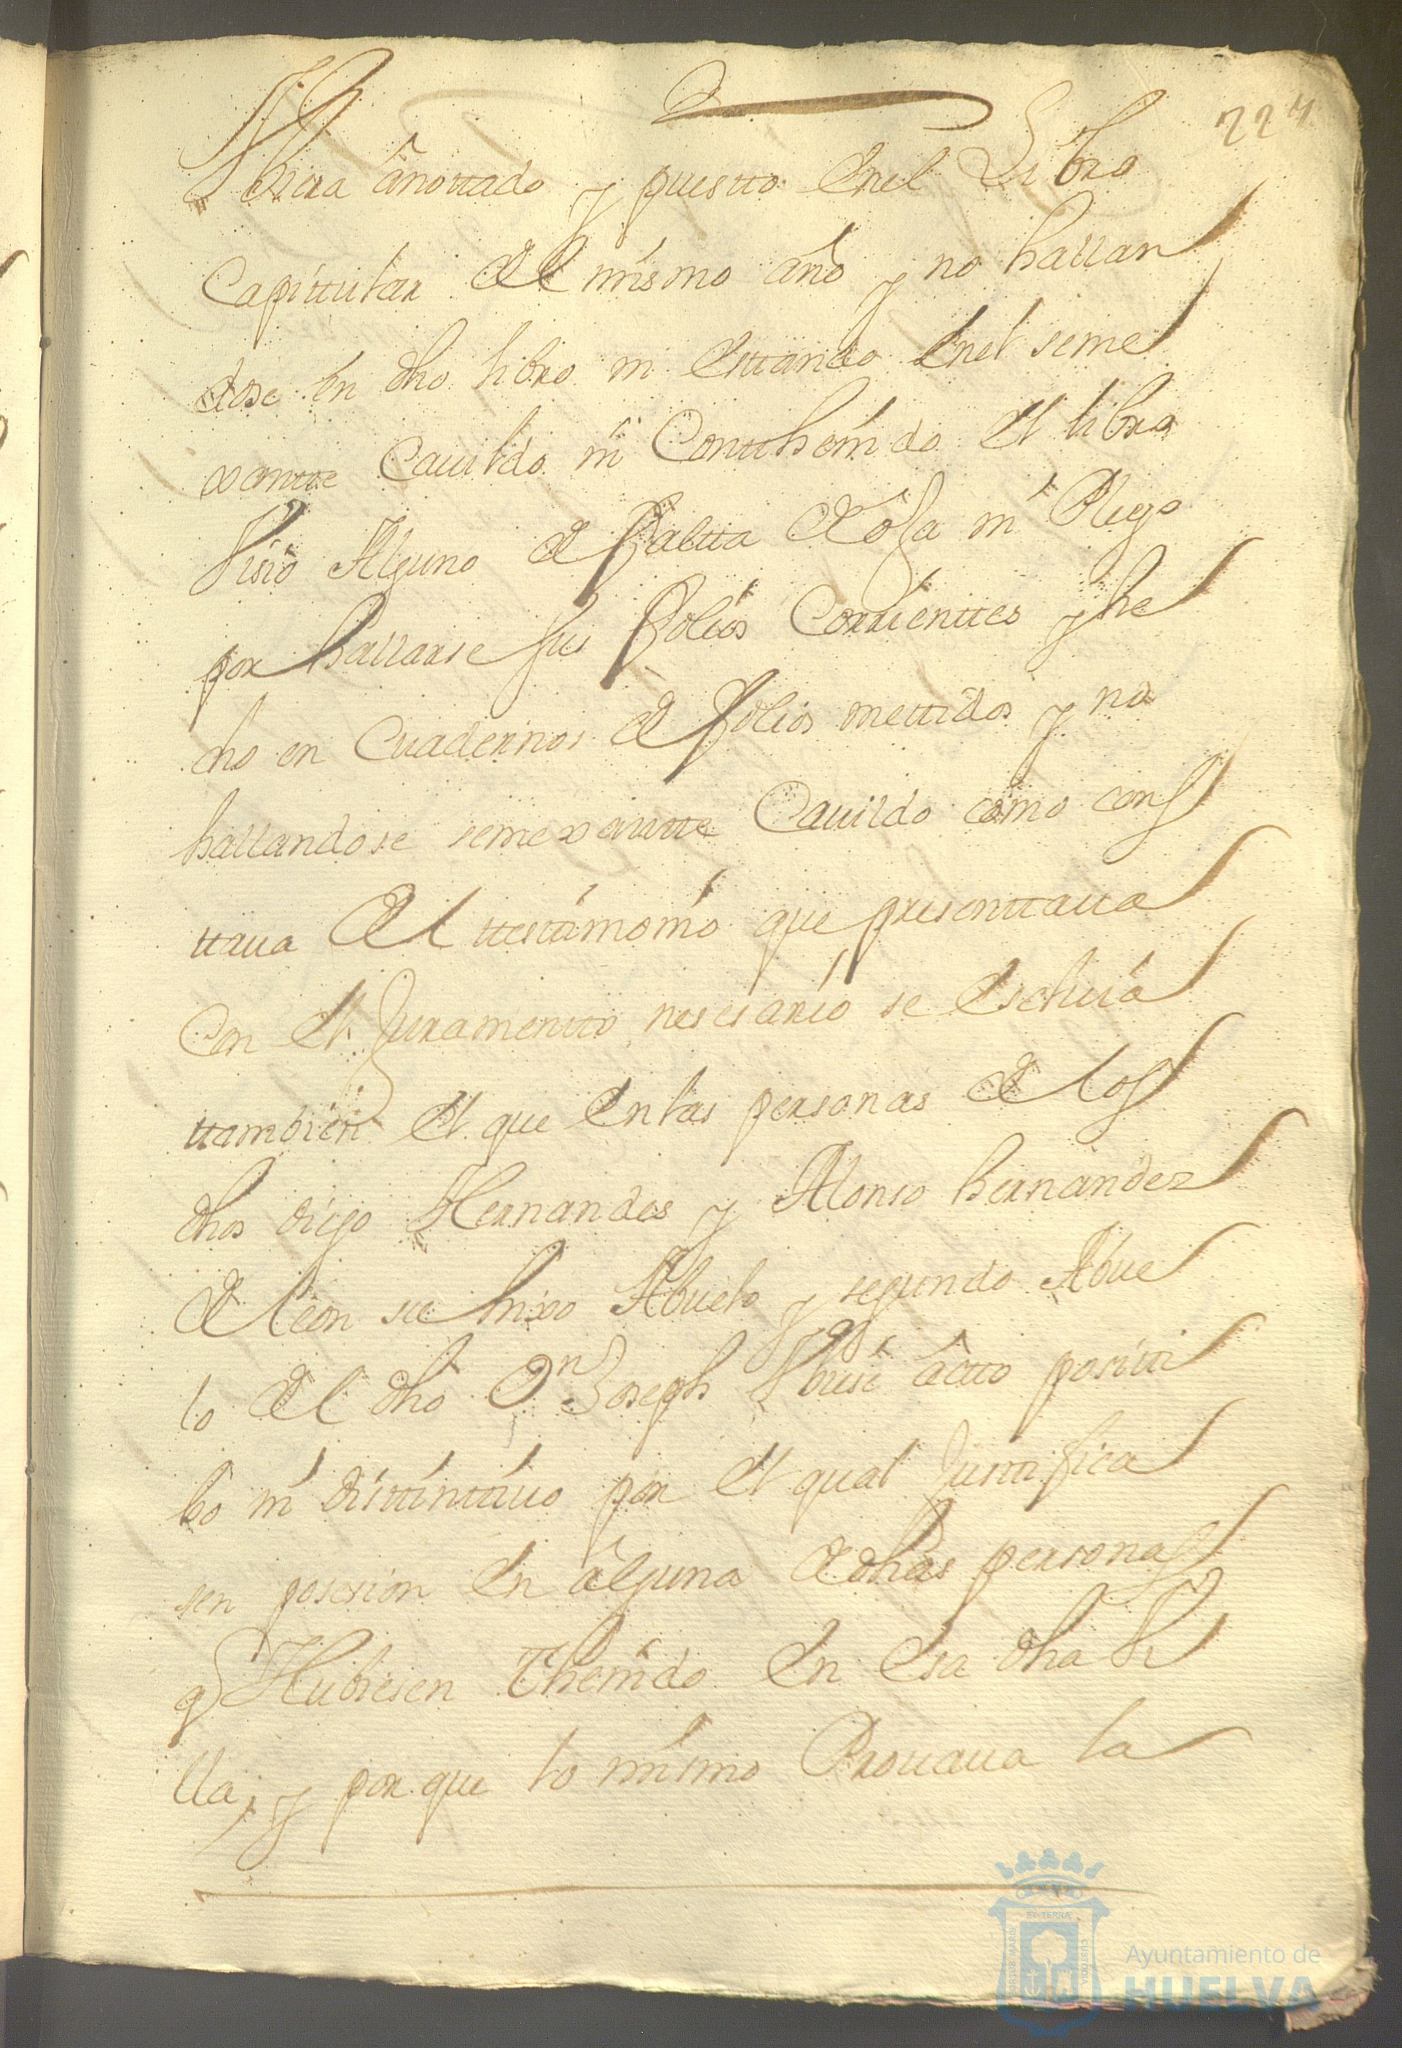 227
viera anottado y puestto Enel Libro
Capittular del mismo año y no hallan
dose en dho libro ni Esttando Enel seme
xantte Cavildo ni Conttheñido El libro
Visio Alguno de faltta de oja ni Pliego
por hallarse sus folios Corrienttes y he
cho en Cuadernos de folios mettidos y no
hallandose semexantte Cavildo como cons
ttaua del ttesttimonio que presenttaua
Con El Juramentto nesesario se Escluia
ttambien El que En las personas de los
dhos diego Hernandes y Alonso hernandez
de leon su hixo Abuelo y segundo Abue
lo del dho Dn Joseph Vbiese actto positti
bo ni disttinttiuo por El qual Justtifica
sen posesion En alguna de dhas personas
q Hubiesen Thenido En Esa dha Vi
lla, y por que lo mismo Prouaua la
Ayuntamiento de
HUELVA